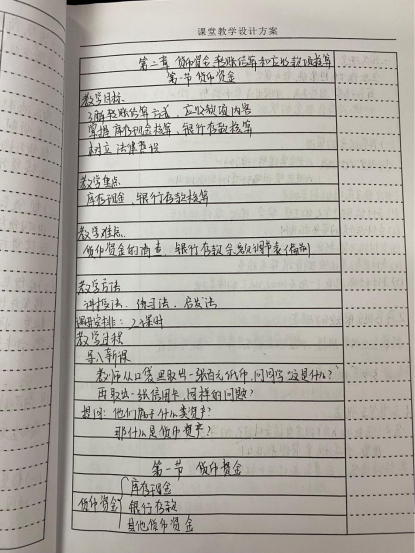 课堂教学设计方案
第二章 货币资金、转账结算和应收款项核算
第一节 货币资金
教学目标
了解转账结算方式、应收款项内容
掌握库存现金核算、银行存款核算
树立法律意识
教学重点
库存现金、银行存款核算
教学难点
货币资金的清查、银行存款余额调节表编制
教学方法
讲授法、练习法、启发法
课时安排:2课时
教学过程
导入新课
教师从口袋里取出一张百元纸币,问同学“这是什么?”
再取出一张信用卡,同样的问题?
提问:他们属于什么类资产?
那什么是货币资产?
第一节 货币资金
货币资金
库存现金
银行存款
其他货币资金